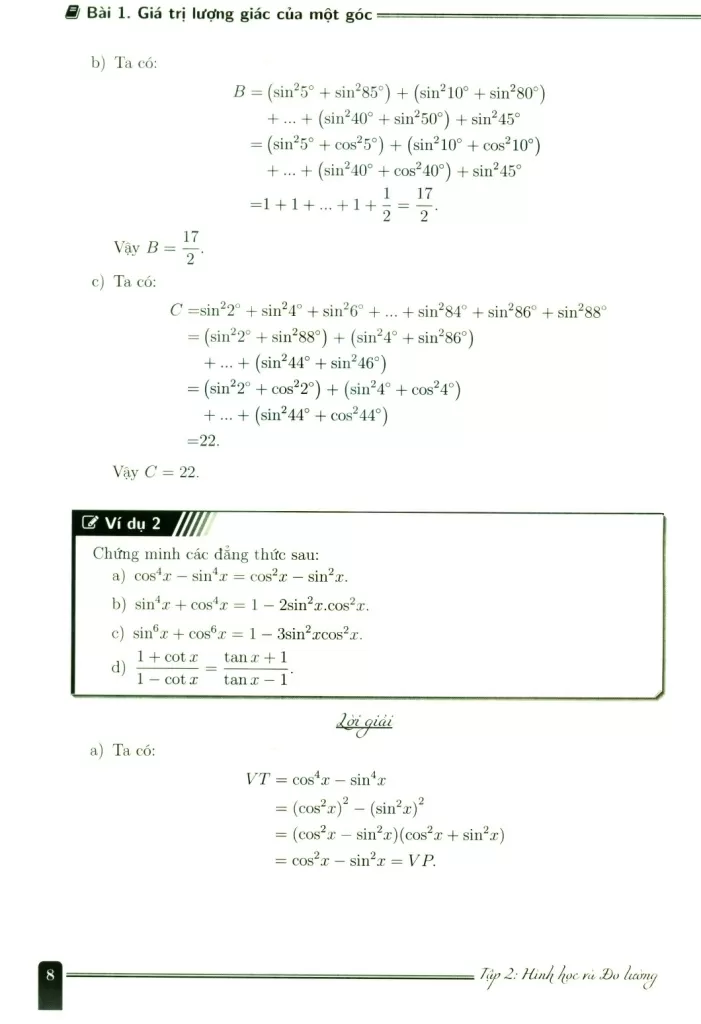 Bài 1. Giá trị lượng giác của một góc
b) Ta có:
B = (sin²5° + sin²85°) + (sin²10° + sin²80°)
+ ... + (sin²40° + sin²50°) + sin²45°
= (sin²5° + cos²5°) + (sin²10° + cos²10°)
+ ... + (sin²40° + cos²40°) + sin²45°
=1 + 1 + ... + 1 + 1/2 = 17/2.
Vậy B = 17/2.
c) Ta có:
C =sin²2° + sin²4° + sin²6° + ... + sin²84° + sin²86° + sin²88°
= (sin²2° + sin²88°) + (sin²4° + sin²86°)
+ ... + (sin²44° + sin²46°)
= (sin²2° + cos²2°) + (sin²4° + cos²4°)
+ ... + (sin²44° + cos²44°)
=22.
Vậy C = 22.
Ví dụ 2
Chứng minh các đẳng thức sau:
a) cos⁴x − sin⁴x = cos²x − sin²x.
b) sin⁴x + cos⁴x = 1 − 2sin²x.cos²x.
c) sin⁶x + cos⁶x = 1 − 3sin²xcos²x.
d) (1 + cot x)/(1 − cot x) = (tan x + 1)/(tan x − 1).
Lời giải
a) Ta có:
VT = cos⁴x − sin⁴x
= (cos²x)² − (sin²x)²
= (cos²x − sin²x)(cos²x + sin²x)
= cos²x − sin²x = VP.
8
Tập 2: Hình học và Đo lường